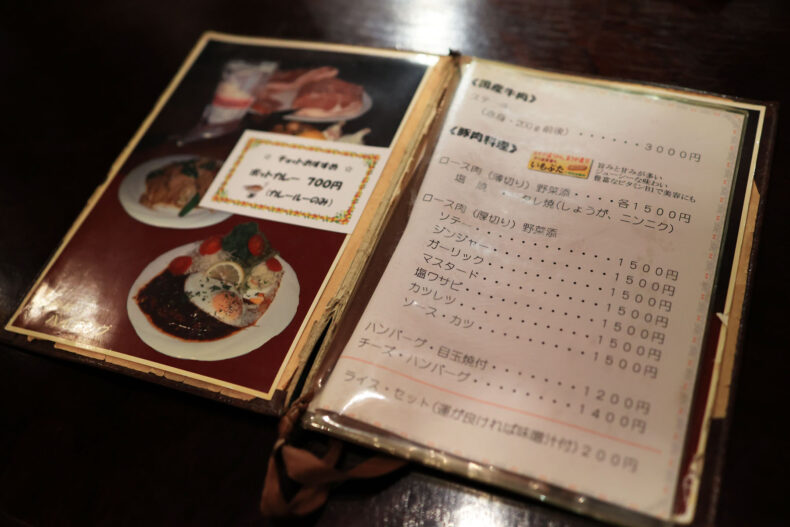 ☆ チョットおすすめ ☆
ポットカレー 700円
(カレールーのみ)
《国産牛肉》
ステーキ
(赤身・200g前後)・・・・・・・3000円
《豚肉料理》
いもぶた
旨みと甘みが多い
ジューシーな味わい
豊富なビタミンB1で美容にも
ロース肉(薄切り)野菜添・・・・各1500円
塩焼 タレ焼(しょうが、ニンニク)
ロース肉(厚切り)野菜添
ソテー・・・・・・・・・・・・1500円
ジンジャー・・・・・・・・・・1500円
ガーリック・・・・・・・・・・1500円
マスタード・・・・・・・・・・1500円
塩ワサビ・・・・・・・・・・・1500円
カツレツ・・・・・・・・・・・1500円
ソース・カツ・・・・・・・・・1500円
ハンバーグ・目玉焼付・・・・・・1200円
チーズ・ハンバーグ・・・・・・・1400円
ライス・セット(運が良ければ味噌汁付)200円